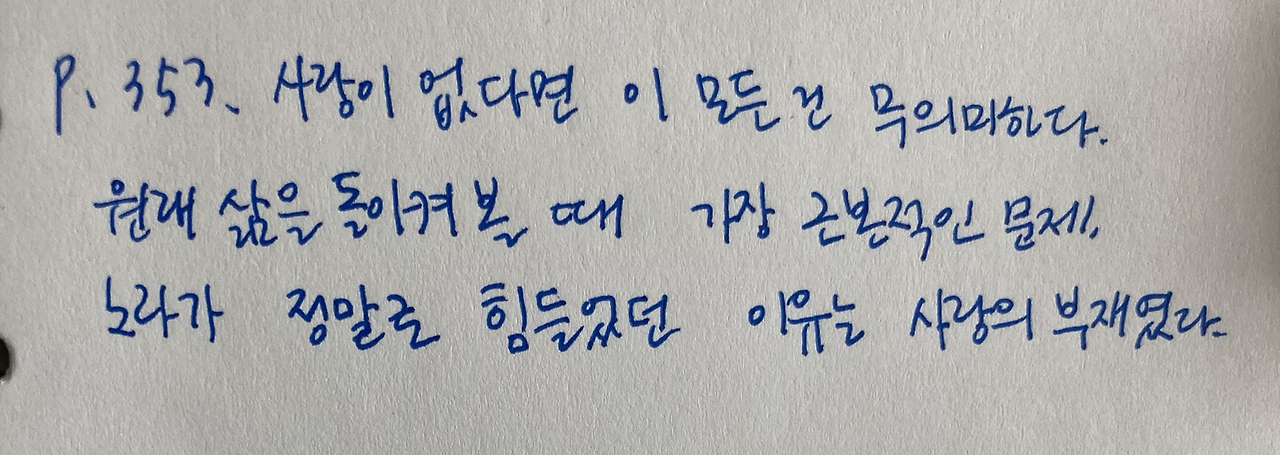 P. 353. 사랑이 없다면 이 모든 건 무의미하다.
원래 삶을 돌이켜 볼 때 가장 근본적인 문제,
노라가 정말로 힘들었던 이유는 사랑의 부재였다.